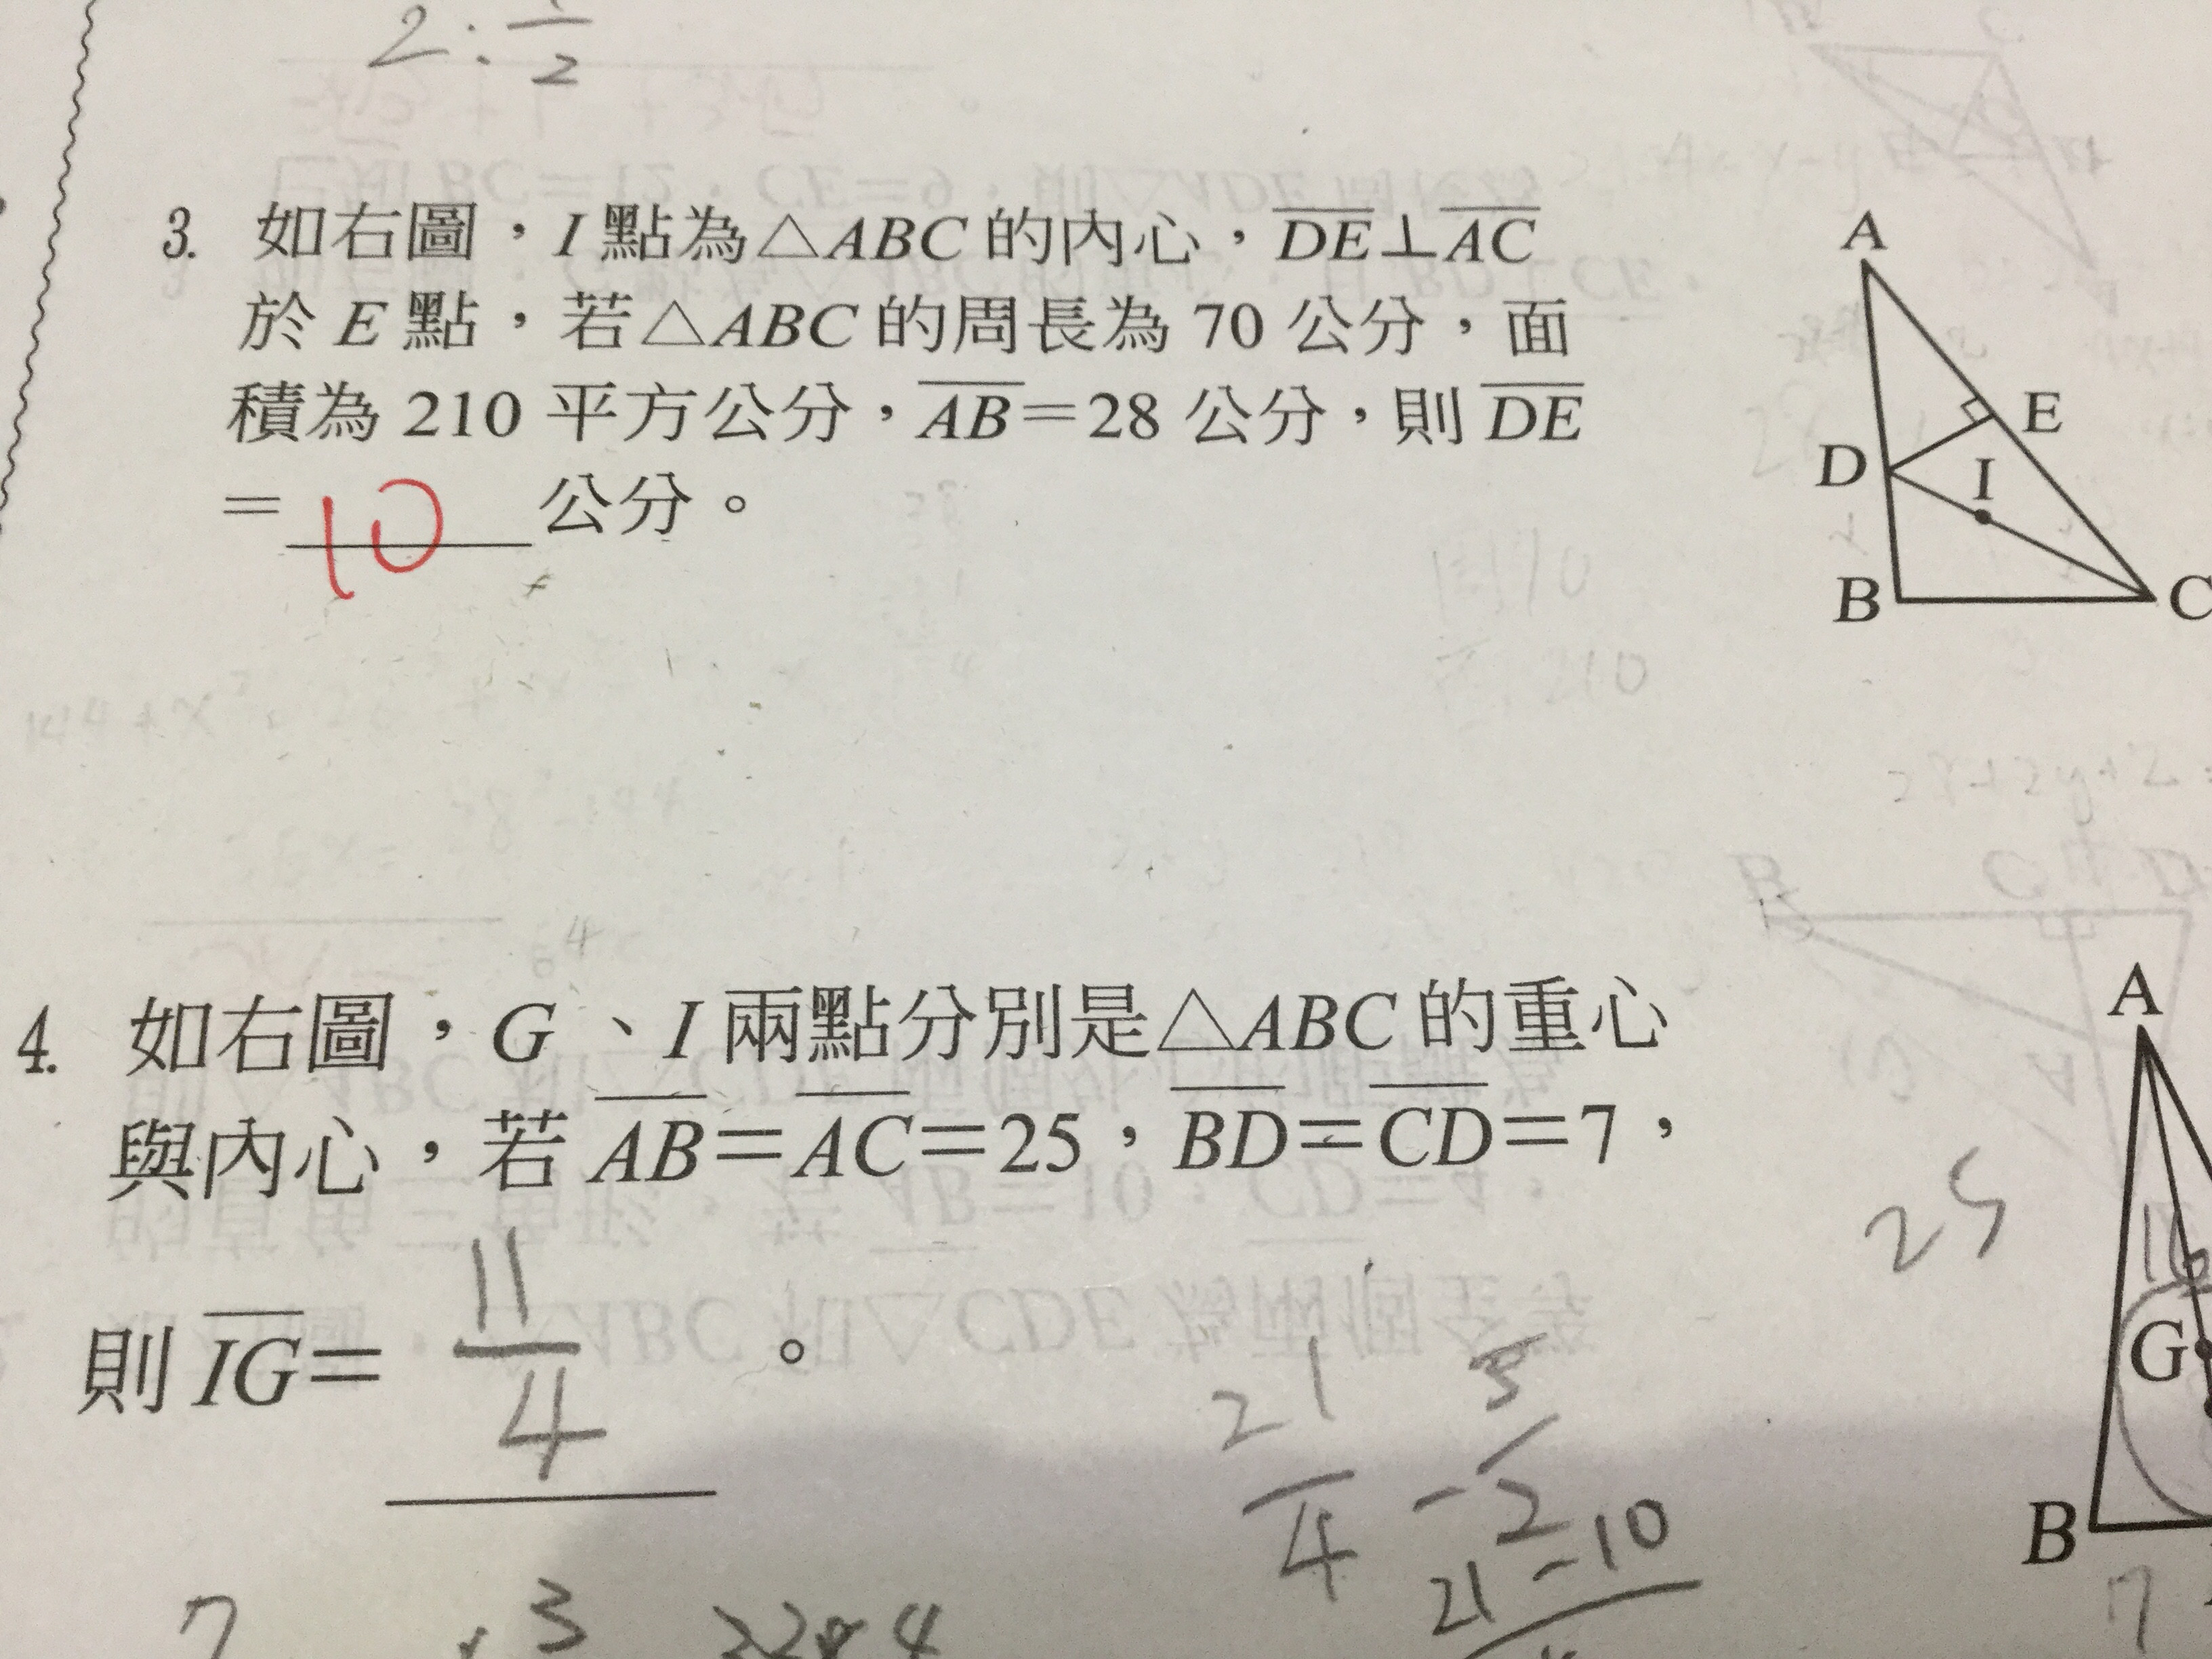 2:
2
3. 如右圖，I 點為△ABC 的內心，DE⊥AC
於 E 點，若△ABC 的周長為 70 公分，面
積為 210 平方公分，AB=28 公分，則 DE
= 10 公分。
A
E
D
I
B
C
4. 如右圖，G 、I 兩點分別是△ABC 的重心
與內心，若 AB=AC=25，BD=CD=7，
則 IG= 11/4 。
A
25
G
B
7
21/4 - 5/2
21-10
7
3